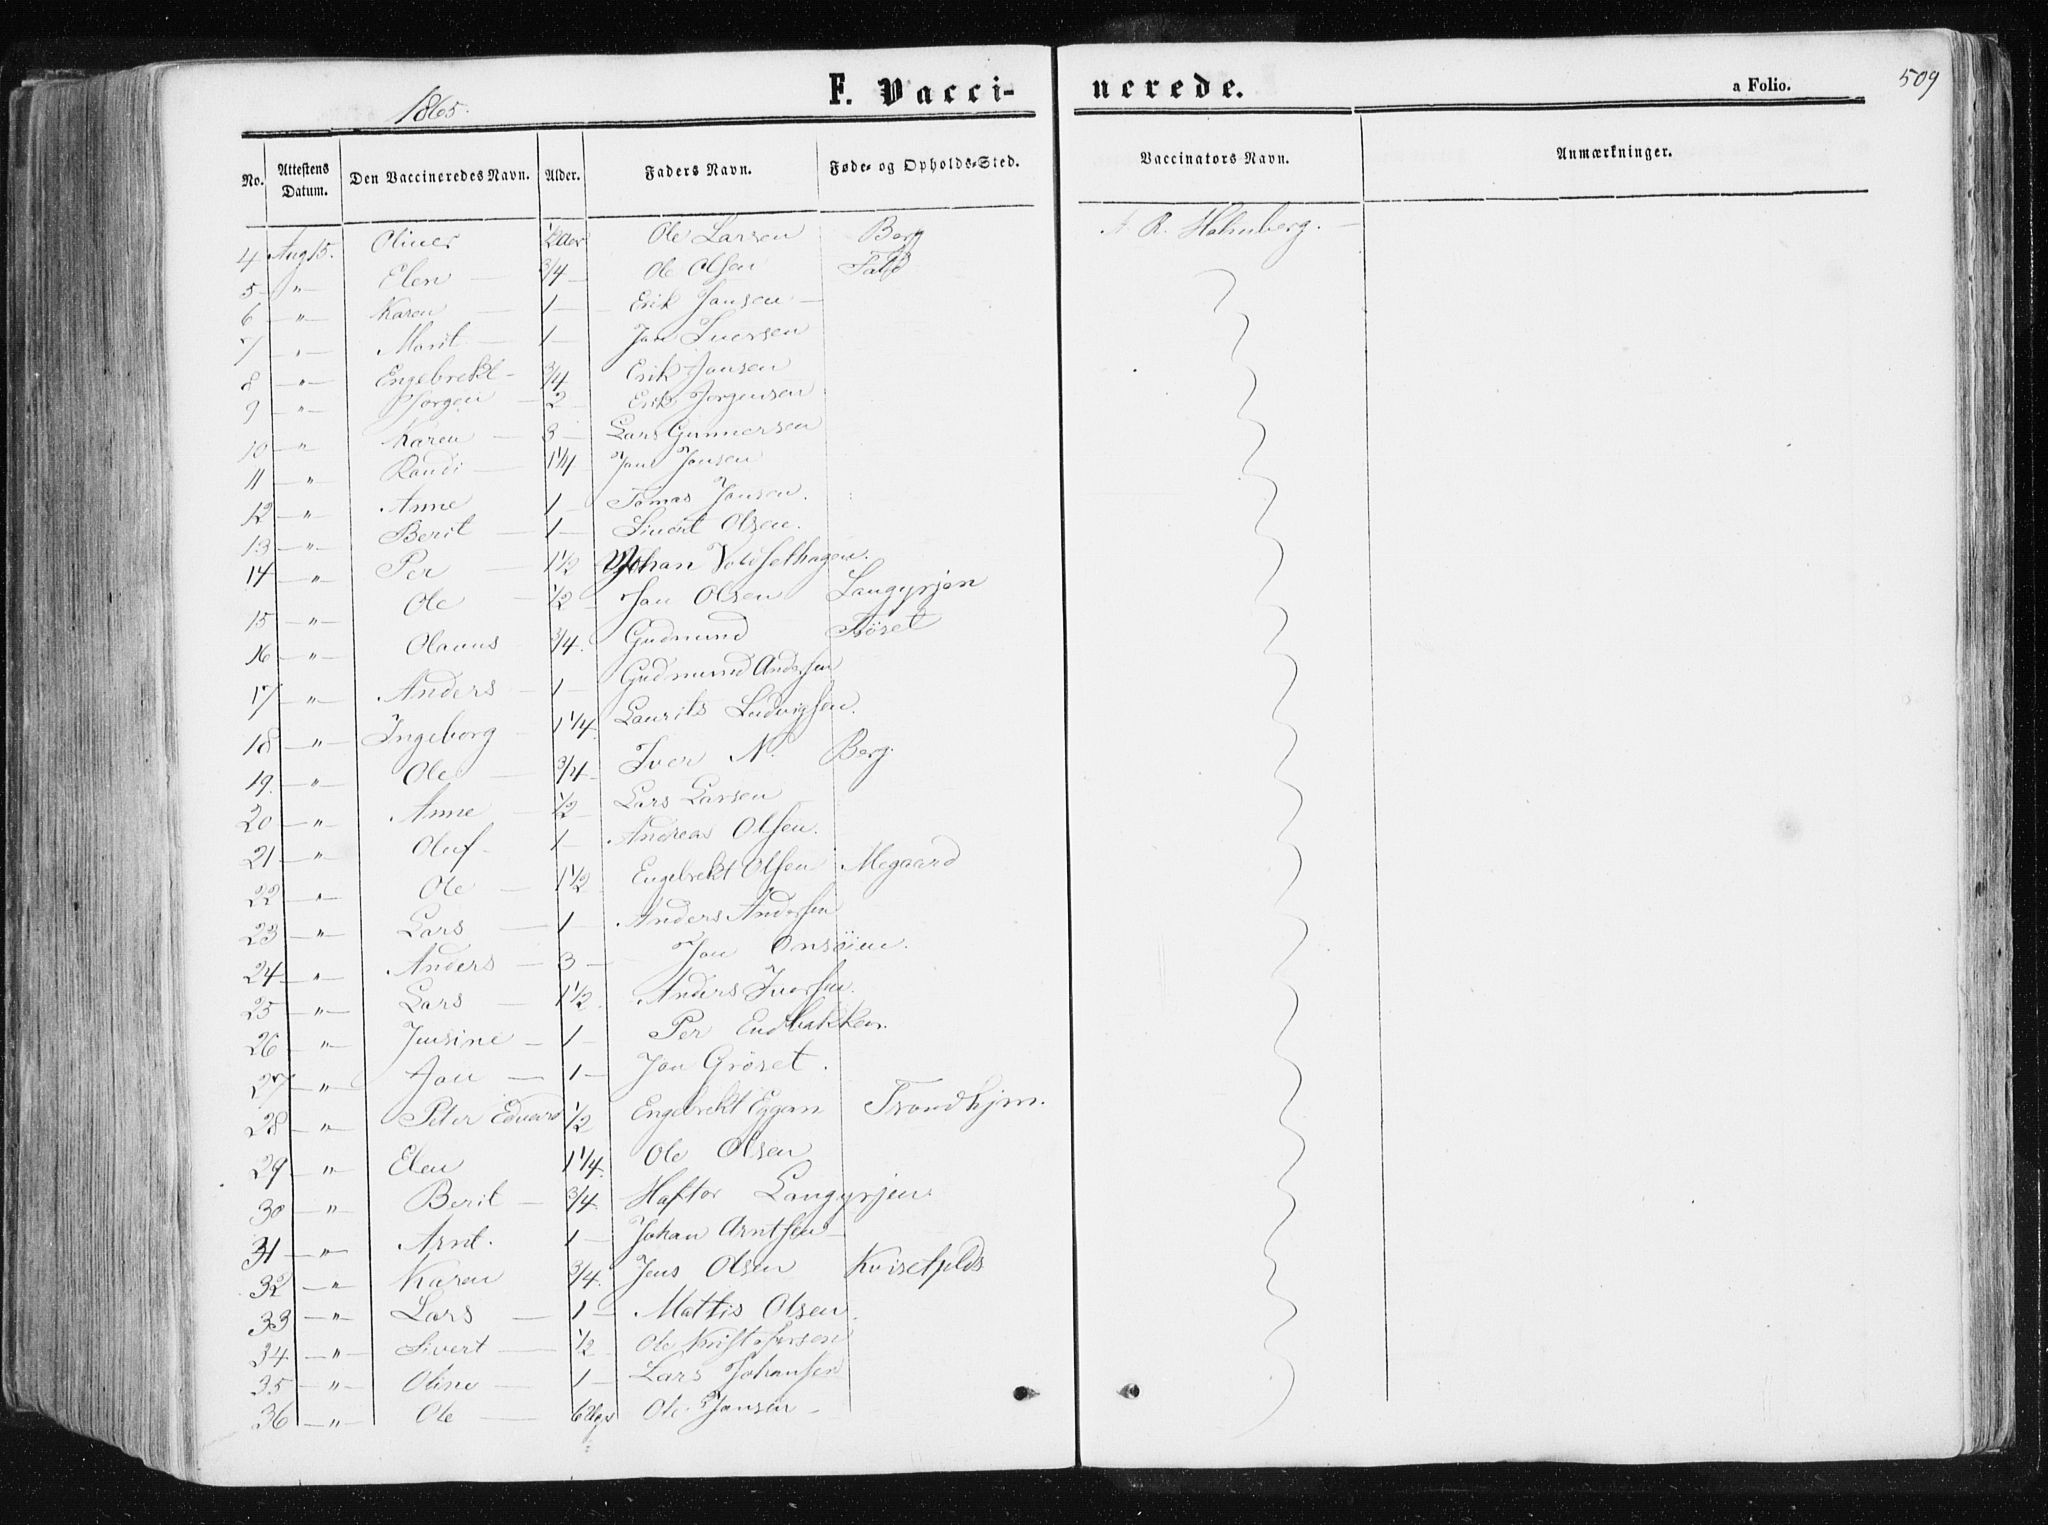 1865.
F. Vacci- nerede.
a Folio.
509
No. Attestens Datum. Den Vaccineredes Navn. Alder. Faders Navn. Føde- og Opholds-Sted. Vaccinators Navn. Anmærkninger.
4 Aug 15. Oliver 1/2 Ole Larsen Berg R. Holmberg. —
5 — " — Elen — 3/4 — Ole Olsen
6 — " — Karen — 1 — Erik Jansen —
7 — " — Marit — 1 — Jon Iversen
8 — " — Engebrekt — 3/4 Erik Jonsen
9 — " — Jørgen — 2 — Erik Jørgensen
10 — " — Karen — 3 — Lars Gunnersen
11 — " — Randi — 1 1/4 Jon Jonsen
12 — " — Anne 1 — Tomas Jonsen.
13 — " — Berit — 1 — Sivert Olsen.
14 — " — Per — 1 1/2 Johan
15 — " — Ole — 1/2 — Jon Olsen Langyrjen
16 — " — Olaus 3/4. Gudmund Trøset
17 — " — Anders — 1 — Gudmund Andersen
18 — " — Ingeborg — 1 1/4. Laurits Ludvigsen.
19. — " — Ole — 3/4 — Iver N. Berg.
20 — " — Anne — 1/2 — Lars Larsen
21 — " — Oluf — 1 — Andreas Olsen.
22 — " — Ole — 1 1/2. Engebrekt Olsen Megaard
23 — " — Lars — 1 — Anders Andersen
24 — " — Anders — 3 — Jon Onsøien.
25 — " — Lars — 1 1/2. Anders Iversen.
26 — " — Jensine — 1 — Per
27 — " — Jon — 1 — Jon Grøset.
28 — " — Peter Edvard 1/2 Engebrekt Eggan Trondhjm.
29 — " — Elen 1 1/4. Ole Olsen
30 — " — Berit — 3/4. Haftor Langyrjen.
31 — " — Arnt. 1 — Johan Arntsen —
32 — " — Karen 3/4. Jens Olsen
33 — " — Lars — 1 — Mattis Olsen.
34 — " — Sivert — 1/2 Ole Kristofersen
35 — " — Oline — 1 — Lars Johansen
36 — " — Ole — 6 Ole Jonsen —